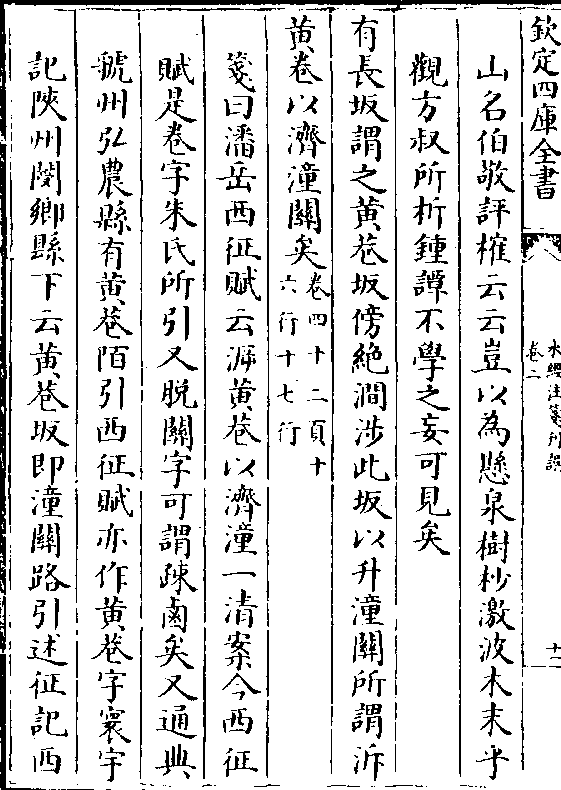 欽定四庫全書
水經注箋刊誤
卷二
十二
山名伯敬評榷云云豈以為懸泉樹杪激波木末乎
觀方叔所析鍾譚不學之妄可見矣
有長坂謂之黄巷坂坂傍絶澗涉此坂以升潼關所謂泝
黄巷以濟潼關矣卷四十二頁十六行十七行
箋曰潘岳西征賦云泝黄巷以濟潼一清案今西征
賦是卷字朱氏所引又脱關字可謂疎鹵矣又通典
虢州弘農縣有黄巷陌引西征賦亦作黄巷字寰宇
記陜州閿鄉縣下云黄巷坂即潼關路引述征記西